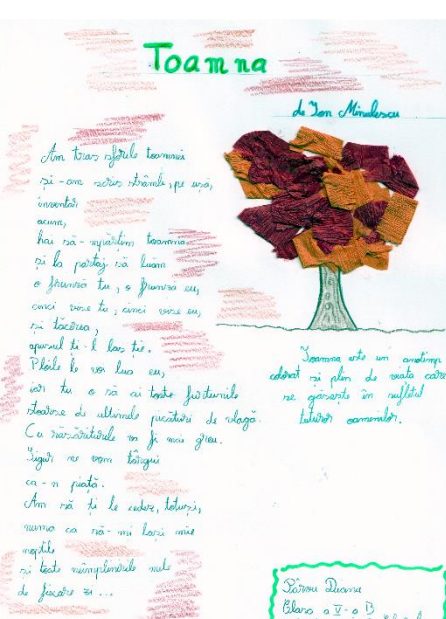 Toamna
de Ion Minulescu
Am tras sforile toamnei
și-am scris strâmb, pe ușă,
inventar
acum,
hai să-mpărțim toamna
și la partaj să luăm
o frunză tu, o frunză eu,
cinci vise tu, cinci vise eu,
și tăcerea,
apusul ți-l las ție.
Ploile le voi lua eu,
iar tu o să ai toate furtunile
stoarse de ultimele picături de vlagă.
Cu răsăriturile va fi mai greu.
Sigur ne vom târgui
ca-n piață.
Am să ți le cedez, totuși,
numa ca să-mi lași mie
nopțile
și toate neîmplinirile mele
de fiecare zi...
Toamna este un anotimp
colorat și plin de viata care
se găsește în sufletul
tuturor oamenilor.
Pârvu Diana
Clasa a V-a B